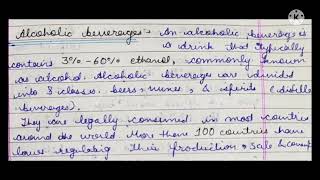 Alcoholic beverages - An alcoholic beverage is
a drink that typically
contains 3% - 60% ethanol, commonly known
as alcohol. Alcoholic beverage are divided
into 3 classes. beers, wines, & spirits (distille
beverages).
They are legally consumed in most countries
around the world More than 100 countries have
laws regulating their production, sale & consup